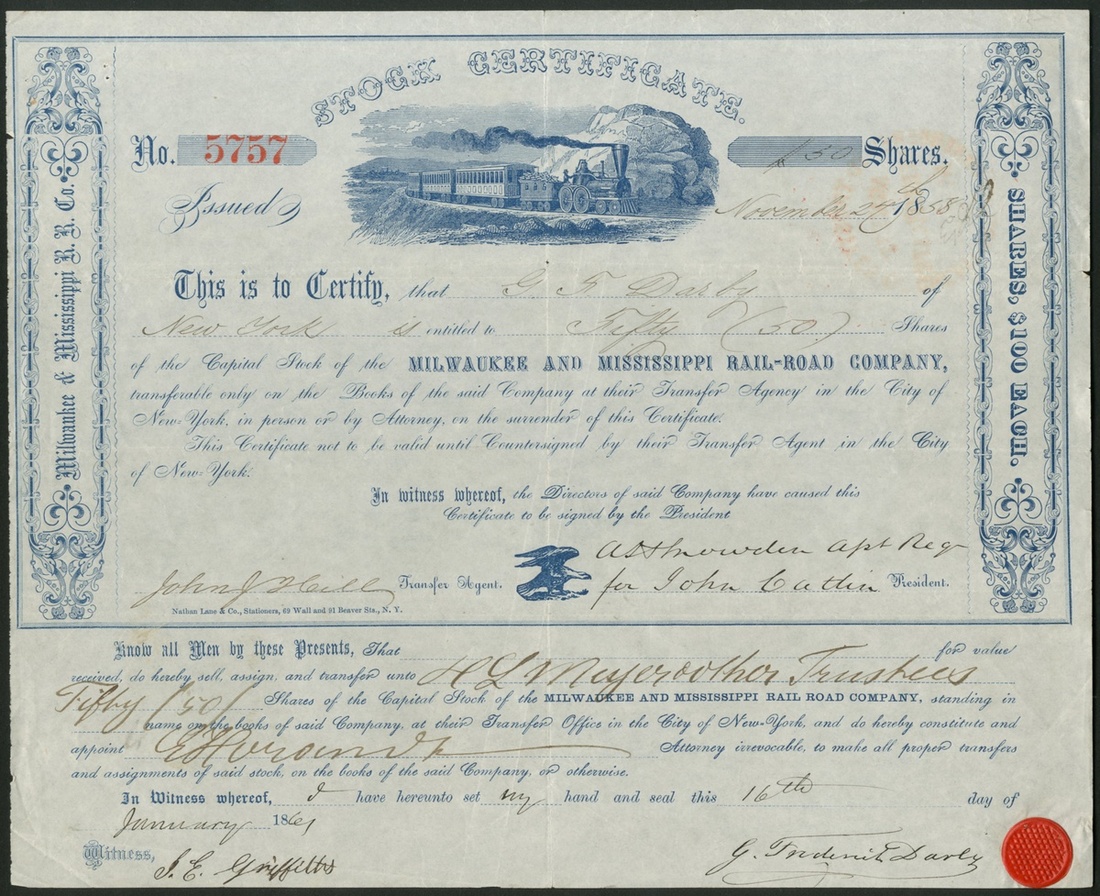 STOCK CERTIFICATE.
No. 5757
50 Shares.
Issued November 24th 1858
Milwaukee & Mississippi R. R. Co.
SHARES, $100 EACH.
This is to Certify, that G. F. Darby of
New York is entitled to Fifty (50) Shares
of the Capital Stock of the MILWAUKEE AND MISSISSIPPI RAIL-ROAD COMPANY,
transferable only on the Books of the said Company at their Transfer Agency in the City of
New-York, in person or by Attorney, on the surrender of this Certificate.
This Certificate not to be valid until Countersigned by their Transfer Agent in the City
of New-York.
In witness whereof, the Directors of said Company have caused this
Certificate to be signed by the President
John J Hill Transfer Agent.
for John Catlin President.
Nathan Lane & Co., Stationers, 69 Wall and 91 Beaver Sts., N. Y.
Know all Men by these Presents, That for value
received, do hereby sell, assign, and transfer unto H L Meyer & other Trustees
Fifty (50) Shares of the Capital Stock of the MILWAUKEE AND MISSISSIPPI RAIL ROAD COMPANY, standing in
name on the books of said Company, at their Transfer Office in the City of New-York, and do hereby constitute and
appoint Attorney irrevocable, to make all proper transfers
and assignments of said stock, on the books of the said Company, or otherwise.
In Witness whereof, I have hereunto set my hand and seal this 16th day of
January 1861
Witness, J. E. Griffiths
G. Frederick Darby